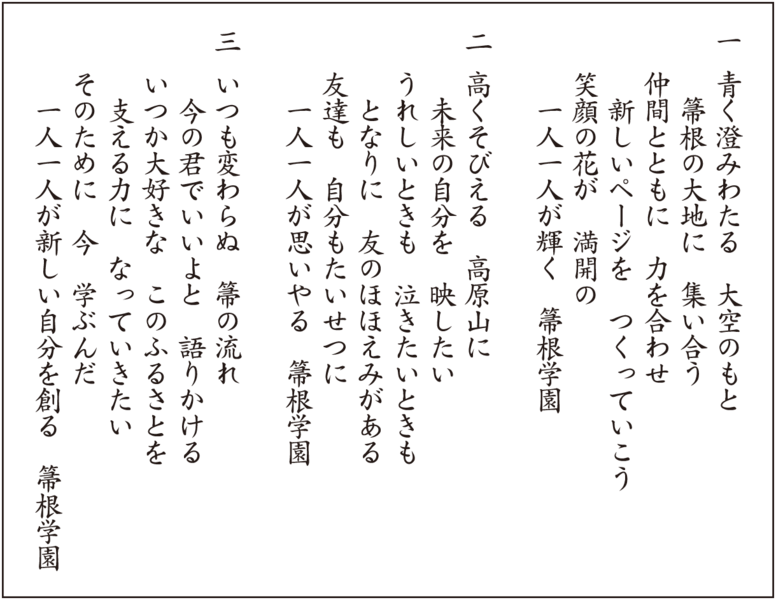 一 青く澄みわたる 大空のもと
箒根の大地に 集い合う
仲間とともに 力を合わせ
新しいページを つくっていこう
笑顔の花が 満開の
一人一人が輝く 箒根学園
二 高くそびえる 高原山に
未来の自分を 映したい
うれしいときも 泣きたいときも
となりに 友のほほえみがある
友達も 自分もたいせつに
一人一人が思いやる 箒根学園
三 いつも変わらぬ 箒の流れ
今の君でいいよと 語りかける
いつか大好きな このふるさとを
支える力に なっていきたい
そのために 今 学ぶんだ
一人一人が新しい自分を創る 箒根学園